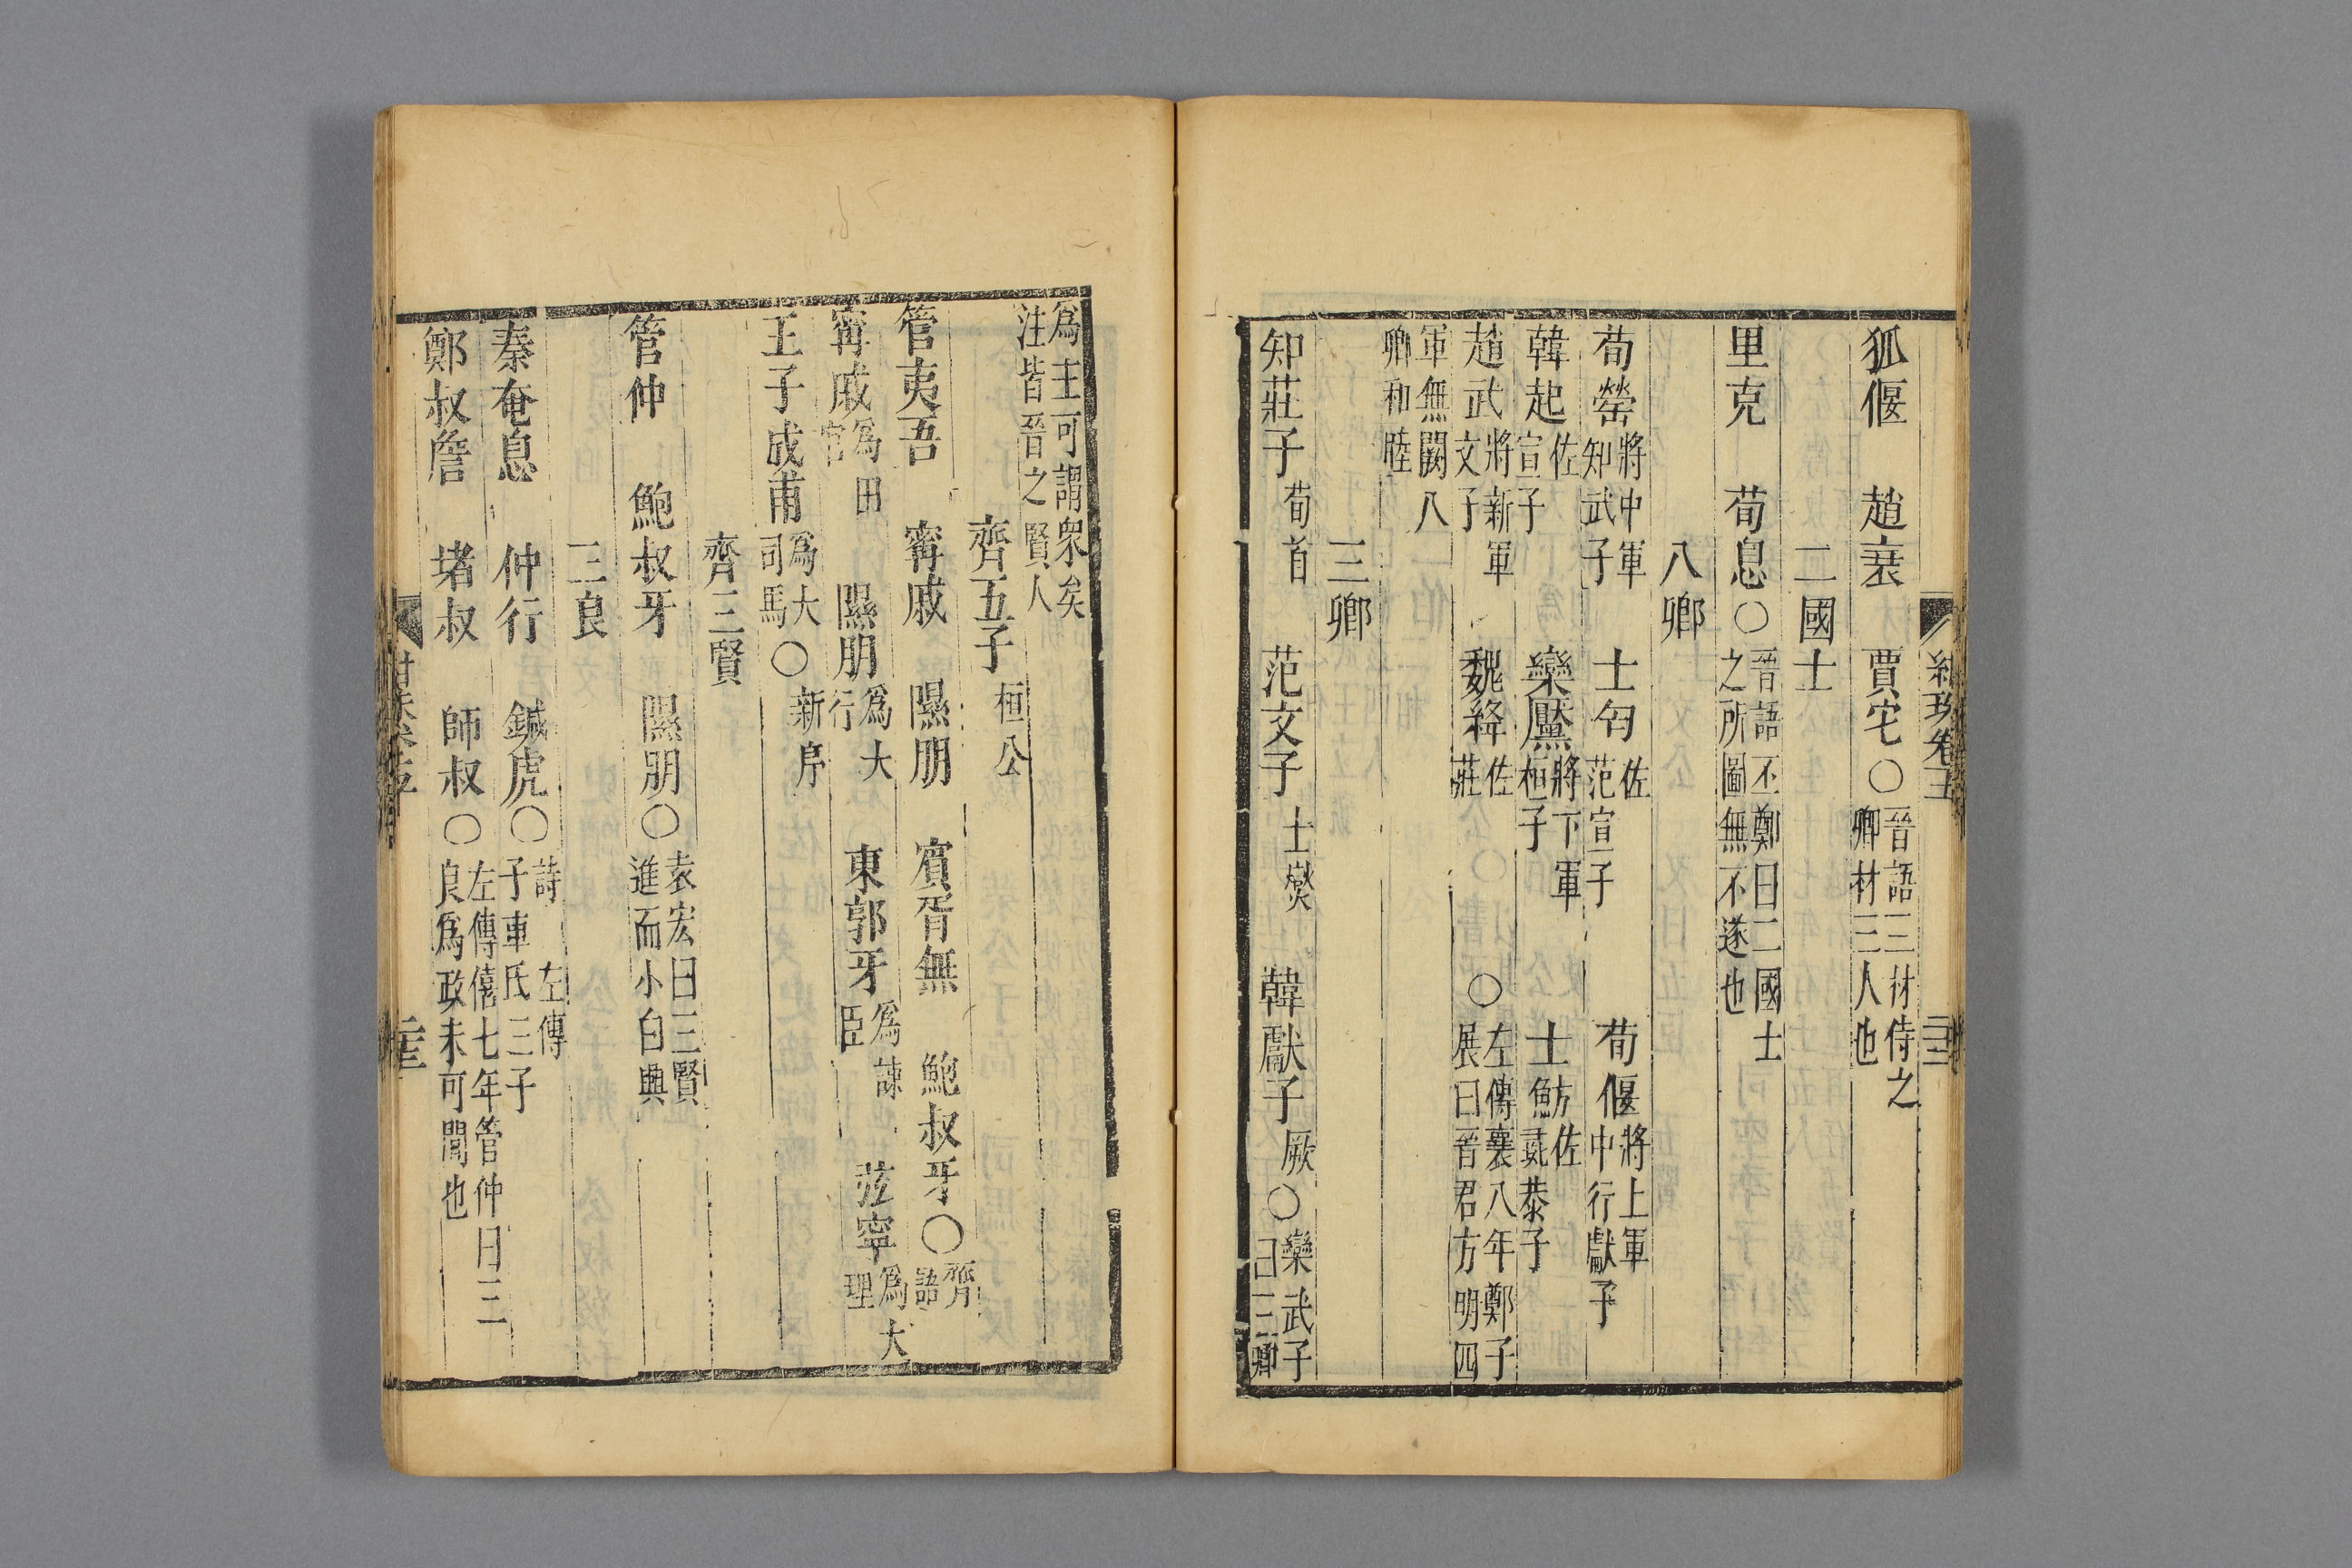 狐偃　趙衰　賈宅○晉語三材侍之卿材三人也
二國士
里克　荀息○晉語丕鄭曰二國士之所圖無不遂也
八卿
荀罃將中軍知武子　士匄佐范宣子　荀偃將上軍中行獻子
韓起佐宣子　欒黶將下軍桓子　士魴佐彘恭子
趙武將新軍文子　魏絳佐莊○左傳襄八年鄭子展曰晉君方明四
軍無闕八卿和睦
三卿
知莊子荀首　范文子士燮　韓獻子厥○欒武子曰三卿
為主可謂衆矣注皆晉之賢人
齊五子桓公
管夷吾　甯戚　隰朋　賓胥無　鮑叔牙○齊語
甯戚為田官　隰朋為大行　東郭牙為諫臣　弦寧為大理
王子成甫為大司馬○新序
齊三賢
管仲　鮑叔牙　隰朋○袁宏曰三賢進而小白興
三良
秦奄息　仲行　鍼虎○詩　左傳子車氏三子
鄭叔詹　堵叔　師叔○左傳僖七年管仲曰三良為政未可間也